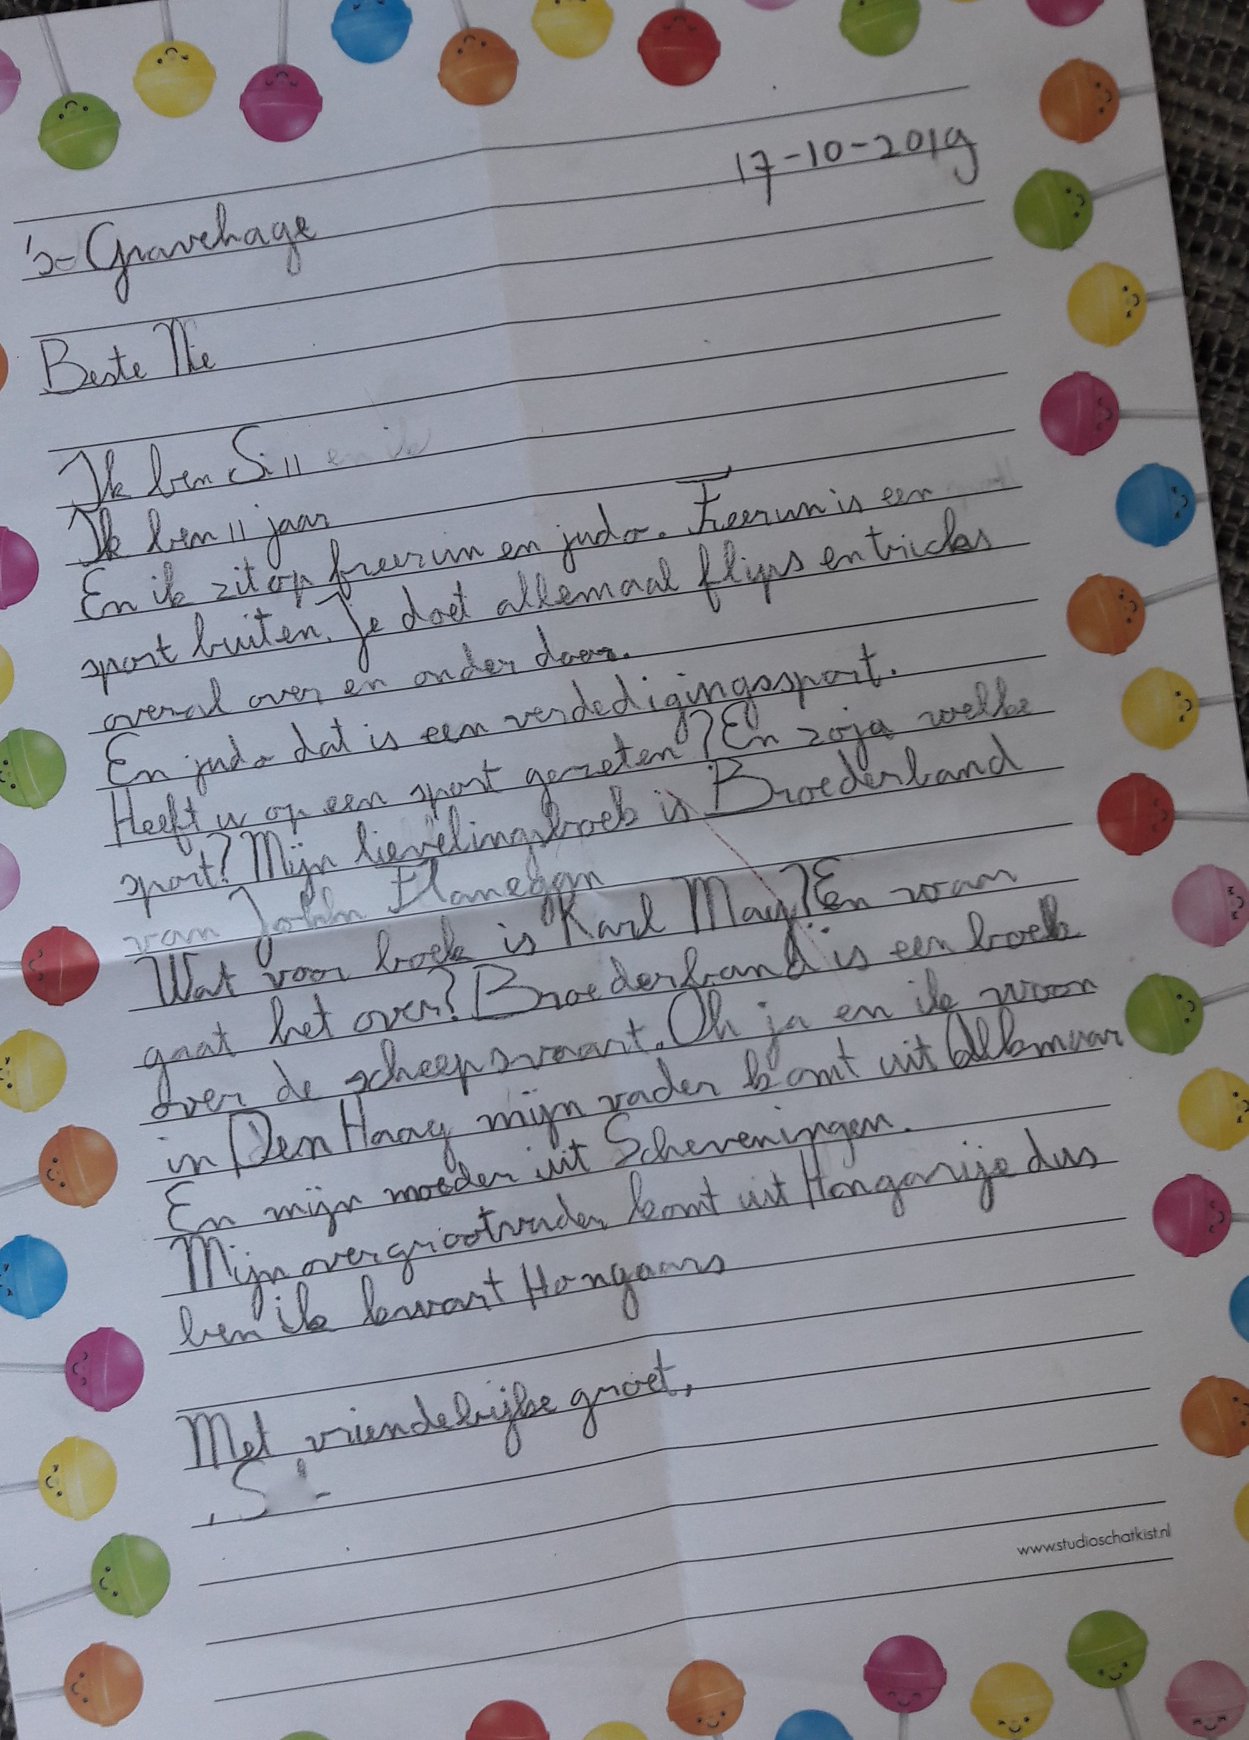 17-10-2019
's-Gravehage
Beste Nie
Ik ben Si 11
Ik ben 11 jaar
En ik zit op freerun en judo. Freerun is een
sport buiten. Je doet allemaal flips en tricks
overal over en onder door.
En judo dat is een verdedigingssport.
Heeft u op een sport gezeten? En zoja welke
sport? Mijn lievelingsboek is Broederband
van John Flanegan
Wat voor boek is Karl May? En waar
gaat het over? Broederband is een boek
over de scheepsvaart. Oh ja en ik woon
in Den Haag mijn vader komt uit Alkmaar
En mijn moeder uit Scheveningen.
Mijn overgrootvader komt uit Hongarije dus
ben ik kwart Hongaars
Met vriendelijke groet,
www.studioschatkist.nl